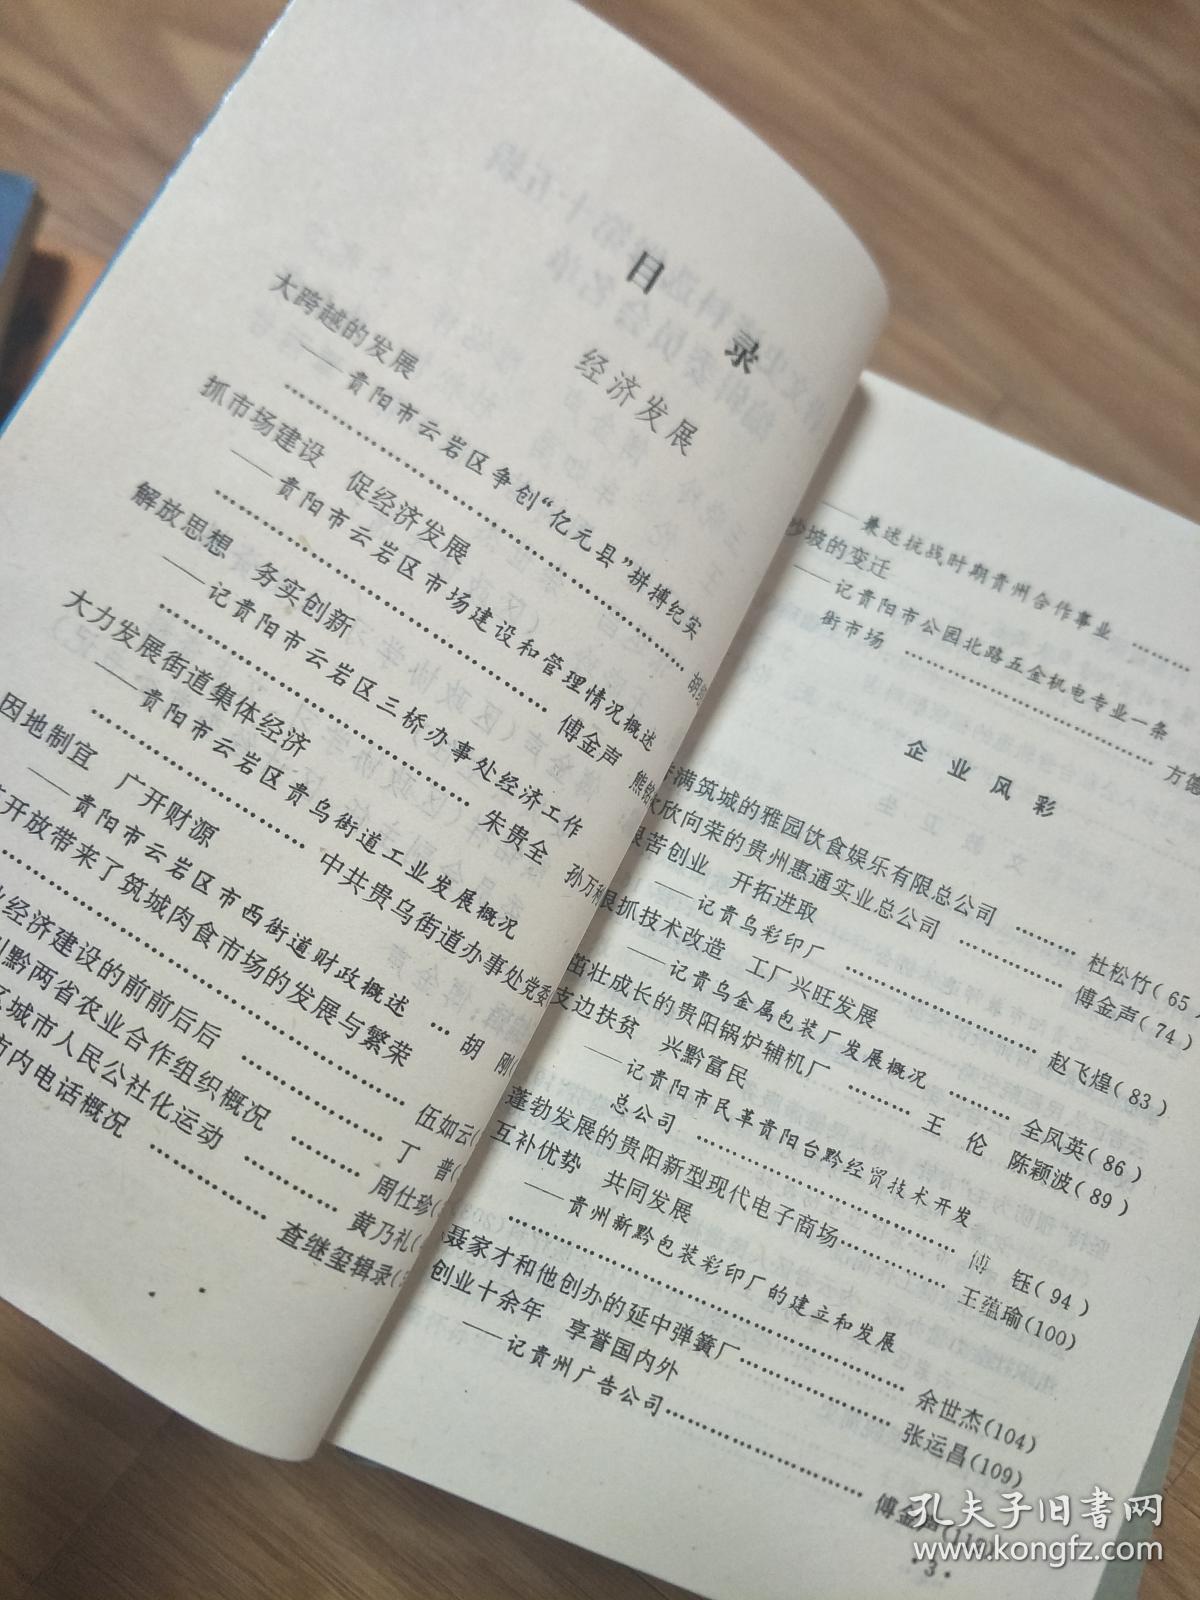 目 录
经济发展
大跨越的发展
——贵阳市云岩区争创“亿元县”拼搏纪实
抓市场建设 促经济发展
——贵阳市云岩区市场建设和管理情况概述
傅金声 熊铭
解放思想 务实创新
——记贵阳市云岩区三桥办事处经济工作
朱贵全 孙万
大力发展街道集体经济
——贵阳市云岩区贵乌街道工业发展概况
中共贵乌街道办事处党委
因地制宜 广开财源
——贵阳市云岩区市西街道财政概述 … 胡 刚(
开放带来了筑城肉食市场的发展与繁荣
伍如云(
经济建设的前前后后 丁 普(
黔两省农业合作组织概况 周仕珍(
城市人民公社化运动 黄乃礼(
内电话概况 查继玺辑录(
——兼述抗战时期贵州合作事业
沙坡的变迁
——记贵阳市公园北路五金机电专业一条
街市场 方德
企业风彩
满筑城的雅园饮食娱乐有限总公司 杜松竹(65)
欣欣向荣的贵州惠通实业总公司 傅金声(74)
艰苦创业 开拓进取
——记贵乌彩印厂 赵飞煌(83)
狠抓技术改造 工厂兴旺发展
——记贵乌金属包装厂发展概况 全凤英(86)
茁壮成长的贵阳锅炉辅机厂 王 伦 陈颖波(89)
支边扶贫 兴黔富民
——记贵阳市民革贵阳台黔经贸技术开发
总公司 傅 钰(94)
蓬勃发展的贵阳新型现代电子商场 王蕴瑜(100)
互补优势 共同发展
——贵州新黔包装彩印厂的建立和发展
余世杰(104)
聂家才和他创办的延中弹簧厂 张运昌(109)
创业十余年 享誉国内外
——记贵州广告公司 傅金声
·3·
孔夫子旧书网
www.kongfz.com